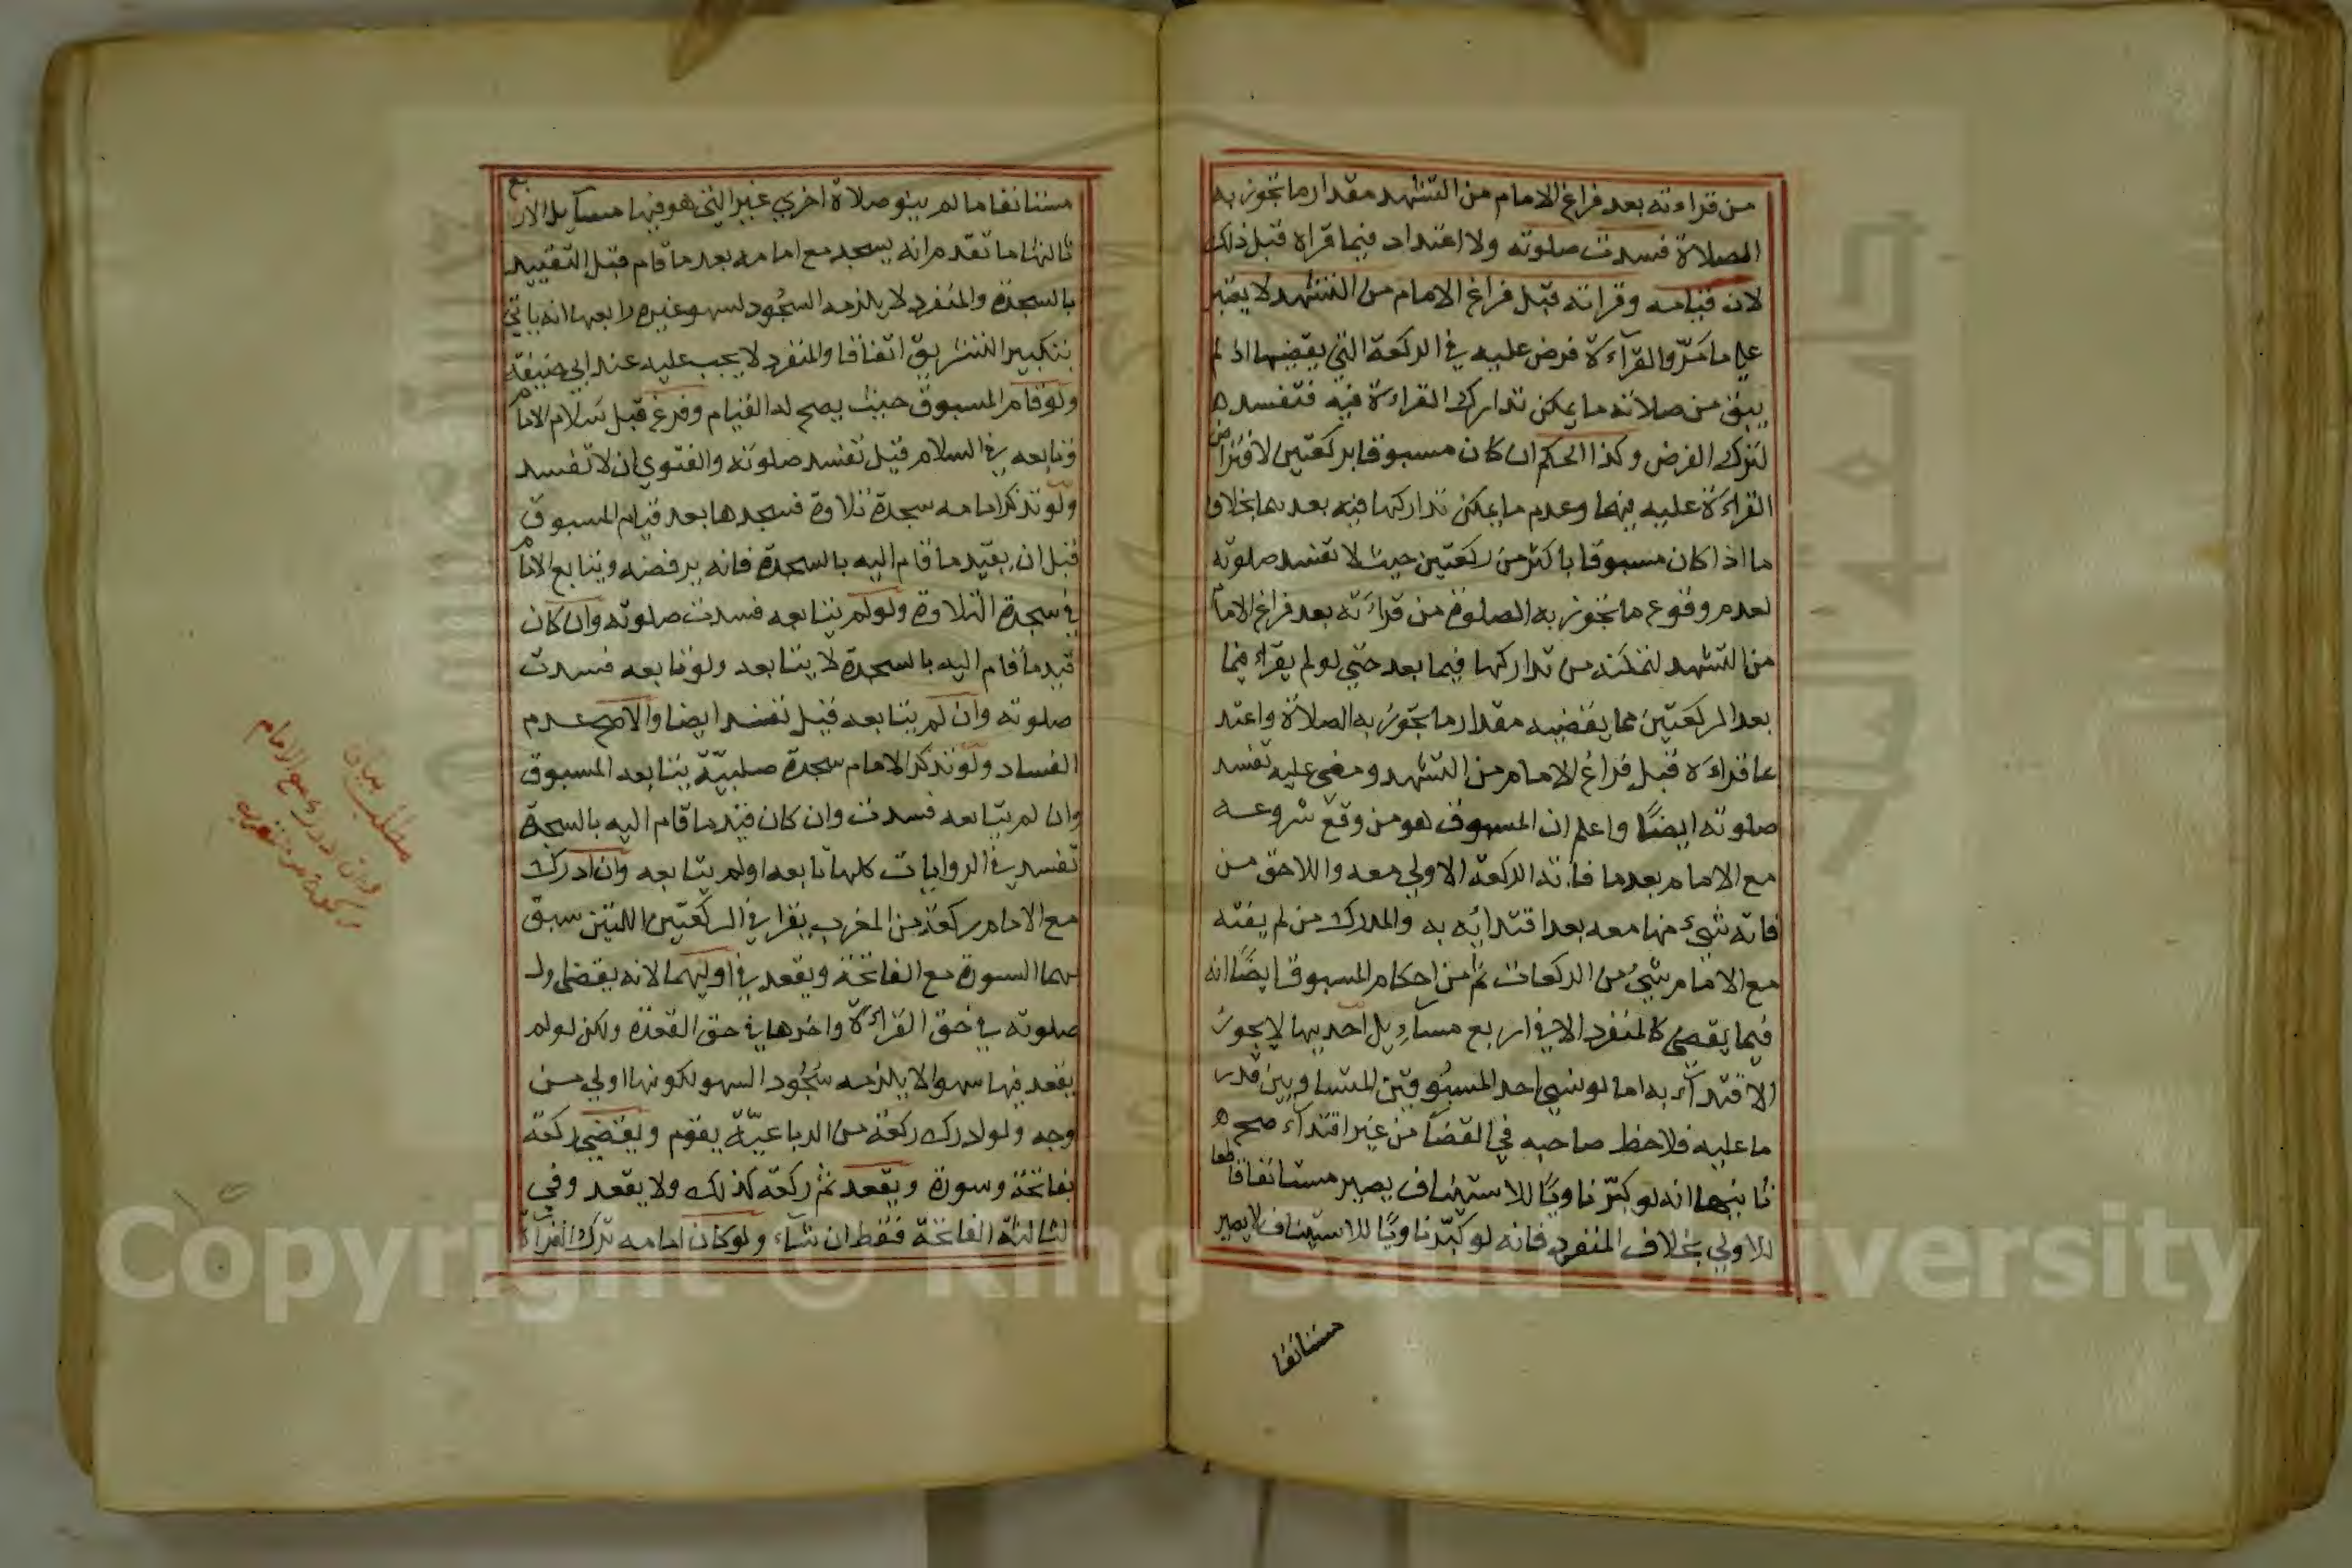 من قراءته بعد فراغ الامام من التشهد مقدار ما تجوز به
الصلاة فسدت صلوته ولا اعتداد فيما قراه قبل ذلك
لان قيامه وقراته قبل فراغ الامام من التشهد لا يعتبر
علي ما مَرّ والقرآءة فرض عليه في الركعة التي يقضيها اذ لم
يبق من صلاته ما يمكن تدارك القراءة فيه فتفسد ه
لترك الفرض وكذا الحكم ان كان مسبوقا بركعتين لافتراض
القراءة عليه فيهما وعدم ما يمكن تداركها فيه بعدهما بخلاف
ما اذا كان مسبوقا باكثر من ركعتين حيث لا تفسد صلوته
لعدم وقوع ما تجوز به الصلوة من قراءته بعد فراغ الامام
من التشهد لتمكنه من تداركها فيما بعد حتي لو لم يقراء فيما
بعد الركعتين مما يقضيه مقدار ما تجوز به الصلاة واعتد
بما قراءه قبل فراغ الامام من التشهد ومضي عليه تفسد
صلوته ايضًا واعلم ان المسبوق هو من وقع شروعه
مع الامام بعد ما فاتته الركعة الاولي معه واللاحق من
فاته شيء منها معه بعد اقتدائه به والمدرك من لم يفته
مع الامام شيء من الركعات ثم من احكام المسبوق ايضًا انه
فيما يقضي كالمنفرد الا في اربع مسآيل احديها لا يجوز
الاقتدآء به اما لو نسي احد المسبوقين المتساويين قدر
ما عليه فلاحظ صاحبه في القضآ من غير اقتدآء صح ه
ثانيها انه لو كبّر ناويًا للاستيناف يصير مستانفا قاطعا
للاولي بخلاف المنفرد فانه لو كبّر ناويًا للاستيناف لا يصير
مستانفا
مستانفا ما لم ينو صلاة اخري غير التي هو فيها مسآيل الاربع
ثالثها ما تقدم انه يسجد مع امامه بعد ما قام قبل التقييد
بالسجدة والمنفرد لا يلزمه السجود لسهو غيره رابعها انه ياتي
بتكبير التشريق اتفاقا والمنفرد لا يجب عليه عند ابي حنيفة
ولو قام المسبوق حيث يصح له القيام وفرغ قبل سلام الامام
وتابعه في السلام قيل تفسد صلوته والفتوي ان لا تفسد
ولو تذكر امامه سجدة تلاوة فسجدها بعد قيام المسبوق
قبل ان يقيد ما قام اليه بالسجدة فانه يرفضه ويتابع الامام
في سجدة التلاوة ولو لم يتابعه فسدت صلوته وان كان
قيد ما قام اليه بالسجدة لا يتابعه ولو تابعه فسدت
صلوته وان لم يتابعه قيل تفسد ايضا والاصح عدم
الفساد ولو تذكر الامام سجدة صلبيّة يتابعه المسبوق
وان لم يتابعه فسدت وان كان قيد ما قام اليه بالسجدة
تفسد في الروايات كلها تابعه او لم يتابعه وان ادرك
مع الامام ركعة من المغرب يقرا في الركعتين اللتين سبق
بهما السورة مع الفاتحة ويقعد في اوليهما لانه يقضي اول
صلوته في حق القراءة واخرها في حق القعدة ولكن لو لم
يقعد فيها سهوا لا يلزمه سجود السهو لكونها اولي من
وجه ولو ادرك ركعة من الرباعيّة يقوم ويقضي ركعة
بفاتحة وسورة ويقعد ثم ركعة كذلك ولا يقعد وفي
الثالثة الفاتحة فقط ان شآء ولو كان امامه ترك القرآءة
مطلب بيان
ان ادرك مع الامام
ركعة من المغرب
Copyright © King Saud University